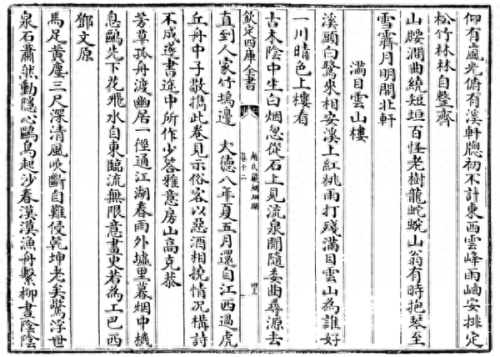 仰有嵐光俯有溪軒牕初不計東西雲峰雨崦安排定
松竹林林自整齊
山腰澗曲繞短垣百怪老樹龍蛇蜿山翁有時抱琴至
雪霽月明開北軒
滿目雲山樓
溪頭白鷺來相安溪上紅桃雨打殘滿目雲山為誰好
一川晴色上樓看
古木陰中生白烟忽從石上見流泉閒隨委曲尋源去
欽定四庫全書
卷十二
直到人家竹塢邊 大德八年夏五月還自江西過虎
丘舟中子敬攜此卷見示俗客以惡酒相撓情况構詩
不成遂書途中所作少答雅意房山高克恭
芳草孤舟渡幽居一徑通江湖春雨外墟里暮烟中機
息鷗先下花飛水自東臨流無限意畫史若為工巴西
鄧文原
馬足黃塵三尺深清風吹斷自難侵乾坤老矣驚浮世
泉石蕭然動隱心鷗鳥起沙春漠漠漁舟繫柳晝陰陰